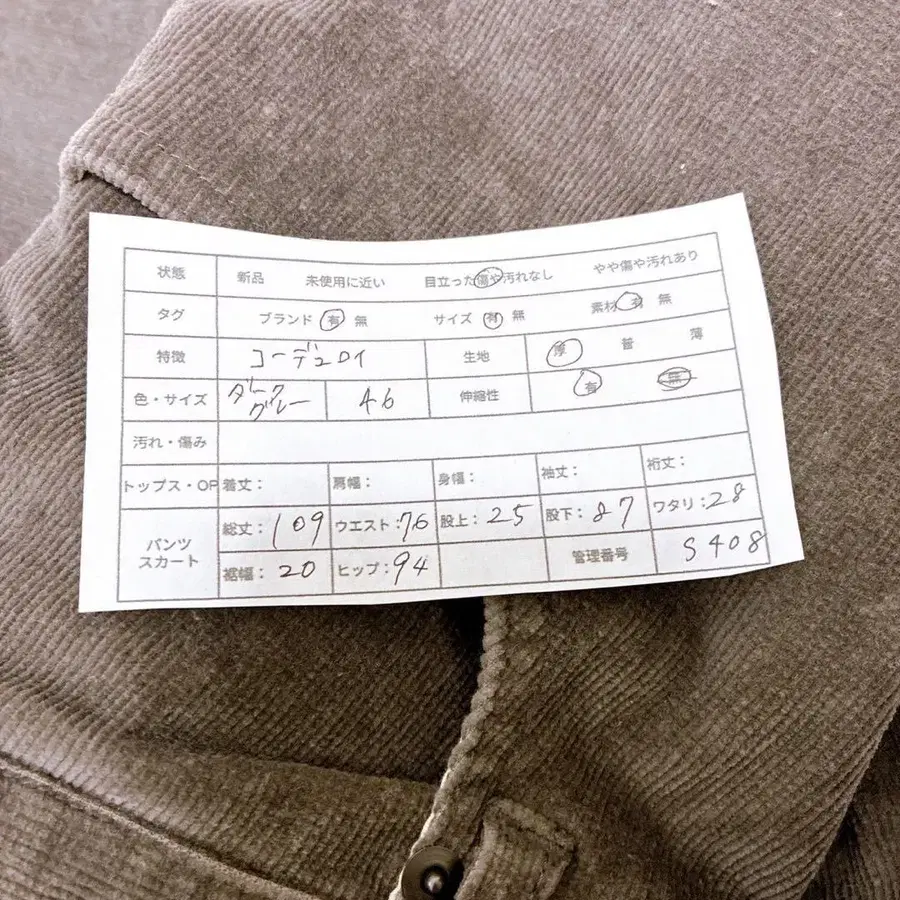 状態 新品 未使用に近い 目立った傷や汚れなし やや傷や汚れあり
タグ ブランド 有 無 サイズ 有 無 素材 有 無
特徴 コーデュロイ 生地 厚 普 薄
色・サイズ ダークグレー 46 伸縮性 有 無
汚れ・傷み
トップス・OP 着丈: 肩幅: 身幅: 袖丈: 裄丈:
パンツ スカート 総丈:109 ウエスト:76 股上:25 股下:87 ワタリ:28
裾幅:20 ヒップ:94 管理番号 S408